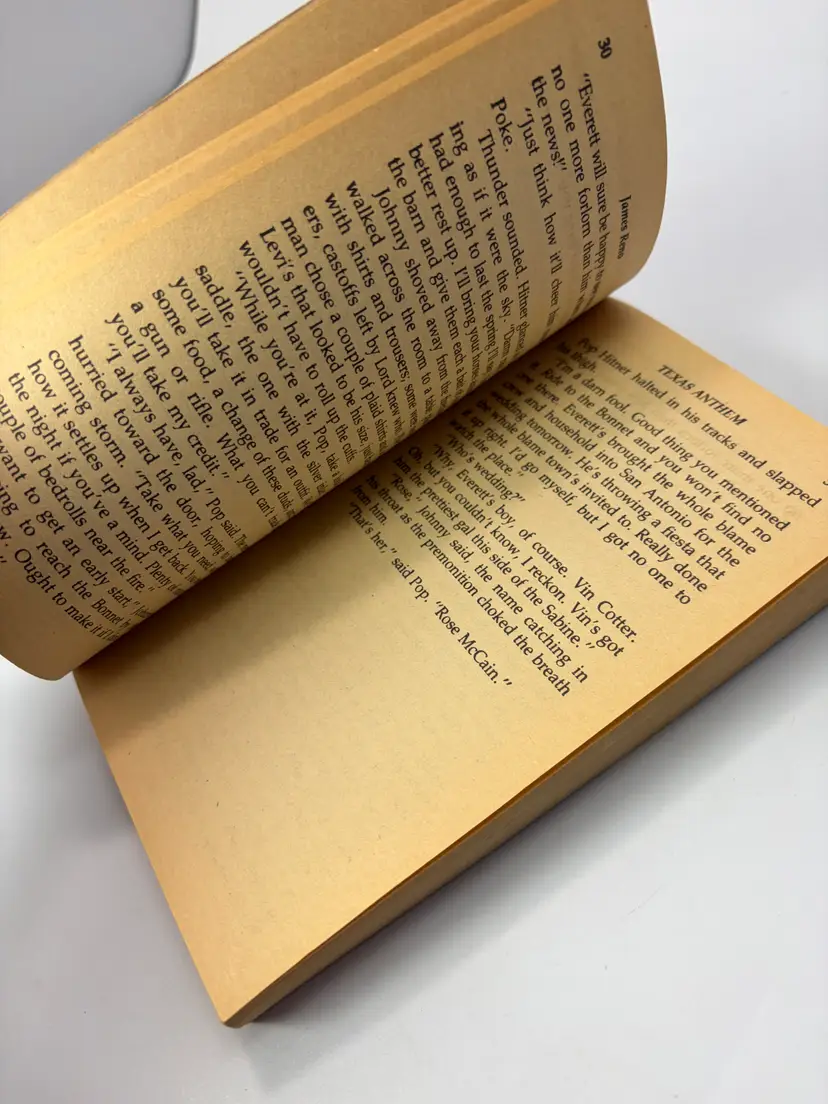 30
James Reno
"Everett will sure be happy to
no one more forlorn than him
the news!"
"Just think how it'll cheer
Poke.
Thunder sounded. Hitner
ing as if it were the sky. "Damn
had enough to last the spring. I'll
better rest up. I'll bring your
the barn and give them each a
Johnny shoved away from the
walked across the room to a
with shirts and trousers; some were
ers, castoffs left by Lord knew who.
man chose a couple of plaid shirts
Levi's that looked to be his size,
wouldn't have to roll up the cuffs.
"While you're at it, Pop, take
saddle, the one with the silver
you'll take it in trade for an outfit
some food, a change of these duds,
a gun or rifle. What you can't
you'll take my credit."
"I always have, lad," Pop said.
hurried toward the door, hoping to
coming storm. "Take what you need
how it settles up when I get back.
the night if you've a mind. Plenty of
couple of bedrolls near the fire."
want to get an early start,"
to reach the Bonnet by
Ought to make it if I
TEXAS ANTHEM
Pop Hitner halted in his tracks and slapped
his thigh.
"I'm a darn fool. Good thing you mentioned
it. Ride to the Bonnet and you won't find no
one there. Everett's brought the whole blame
crew and household into San Antonio for the
wedding tomorrow. He's throwing a fiesta that
the whole blame town's invited to. Really done
it up right. I'd go myself, but I got no one to
watch the place."
"Who's wedding?"
"Why, Everett's boy, of course. Vin Cotter.
Oh, but you couldn't know, I reckon. Vin's got
him the prettiest gal this side of the Sabine."
"Rose," Johnny said, the name catching in
his throat as the premonition choked the breath
from him.
"That's her," said Pop. "Rose McCain."